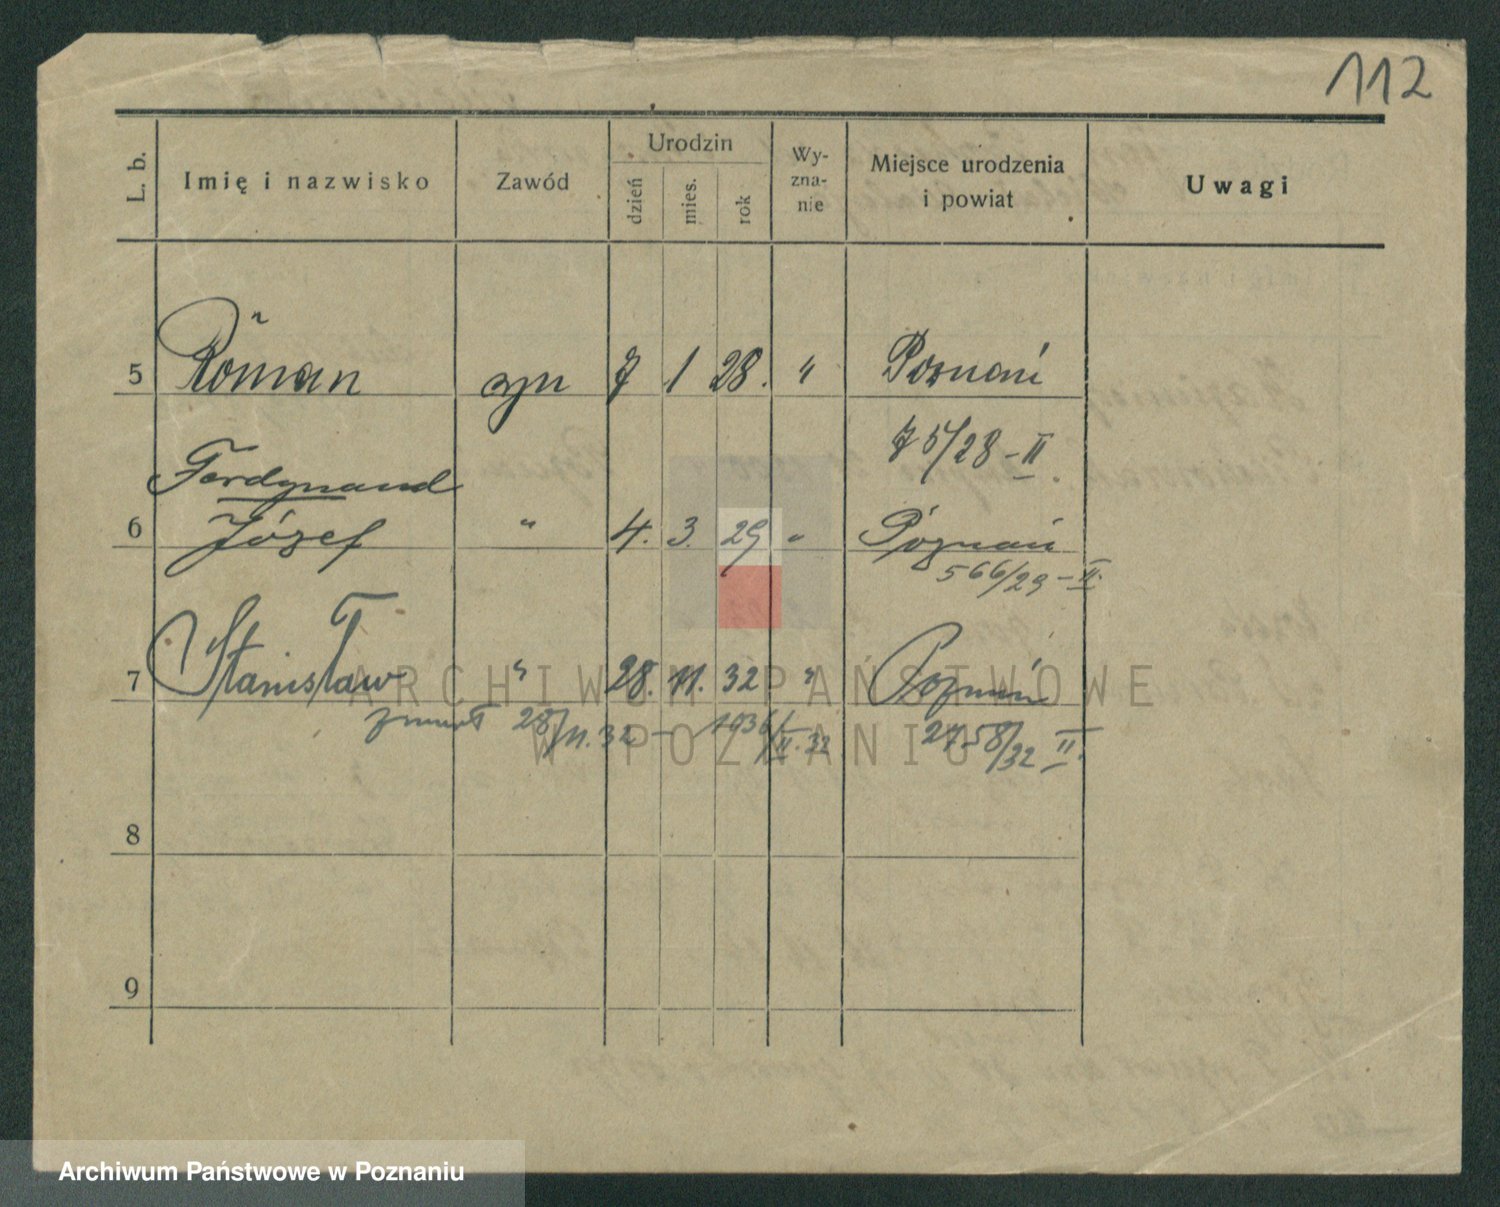 112
L. b.
Imię i nazwisko
Zawód
Urodzin
dzień
mies.
rok
Wy-
zna-
nie
Miejsce urodzenia
i powiat
Uwagi
5 Roman syn 7 1 28. " Poznań
75/28 - II.
Ferdynand
6 Józef " 4. 3. 29 " Poznań
566/29 - II.
7 Stanisław " 28. 11. 32 " Poznań
zmarł 28/11.32 - 1936/II.32 2758/32 II.
8
9
ARCHIWUM PAŃSTWOWE
W POZNANIU
Archiwum Państwowe w Poznaniu